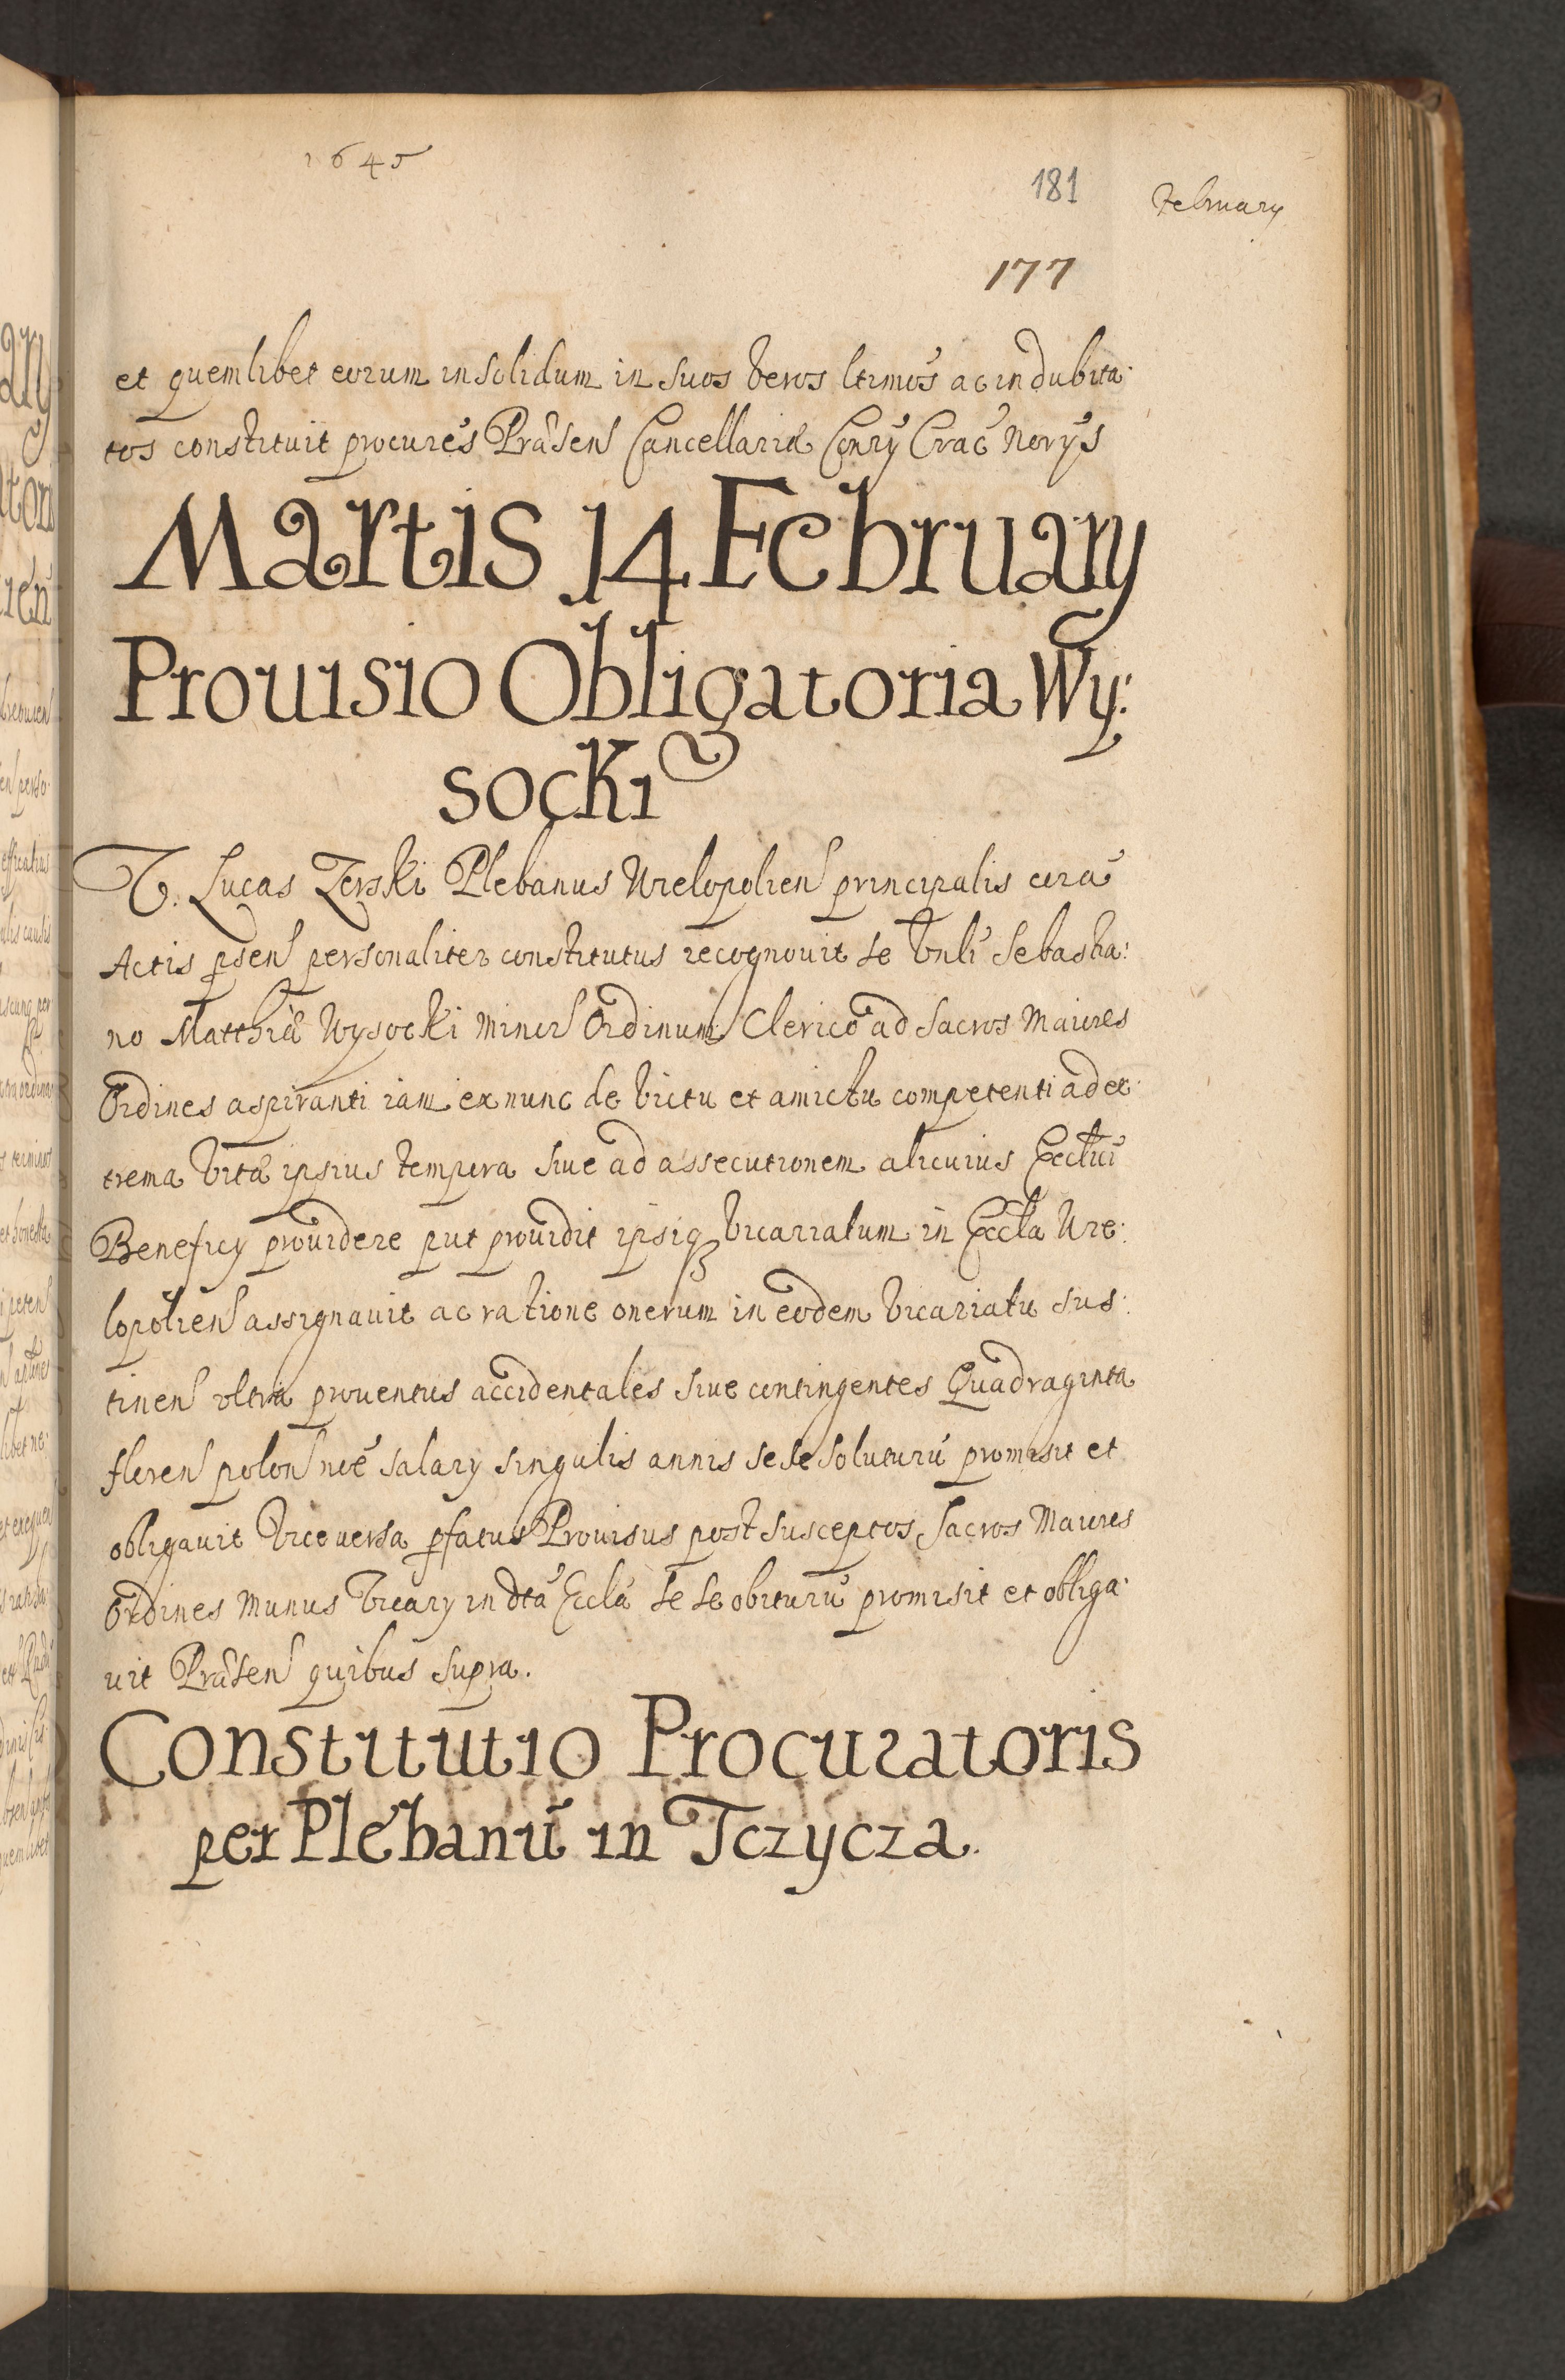 1645
181
February
177
et quemlibet eorum in solidum in suos veros ltimos ac indubita:
tos constituit procures Præsen Cancellariæ Consry Crac Norys
Martis 14 February
Prouisio Obligatoria Wy:
socki
V. Lucas Zerski Plebanus Wielopolien principalis cora
Actis psen personaliter constitutus recognouit se Vnli Sebastia:
no Matthiæ Wysocki minor Ordinum Clerico ad Sacros Maiores
Ordines aspiranti iam ex nunc de victu et amictu competenti ad ex:
trema vitæ ipsius tempora siue ad assecutionem alicuius Ecctici
Beneficy prouidere put prouidit ipsiq Vicariatum in Eccla Wie:
lopolien assignauit ac ratione onerum in eodem Vicariatu sus:
tinen vltra prouentus accidentales siue contingentes Quadraginta
floren polon noe salary singulis annis sese soluturu promisit et
obligauit Vice versa pfatus Prouisus post susceptos Sacros Maiores
Ordines munus Vicary in dta Eccla se se obituru promisit et obliga:
uit Præsen quibus supra.
Constitutio Procuratoris
per Plebanu in Tczycza.